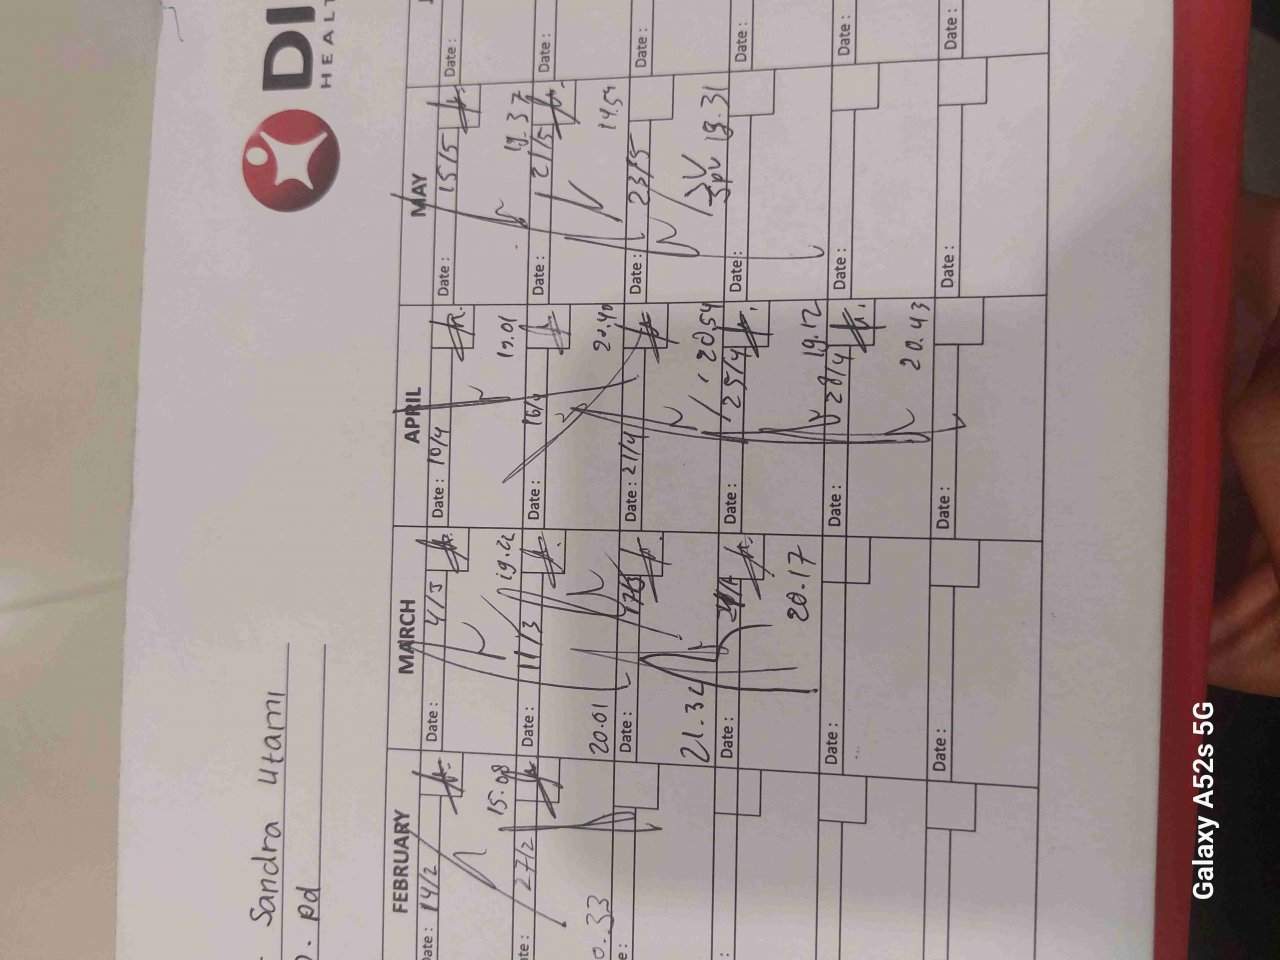 DI
HEALT
Sandra Utami
Pd
FEBRUARY
MARCH
APRIL
MAY
Date: 14/2
Date: 4/3
Date: 10/4
Date: 15/5
Date:
15.08
19.01
19.37
27/2
Date: 11/3
Date: 16/4
Date: 21/5
Date:
20.01
20.40
14.54
Date:
Date: 21/4
Date: 23/5
Date:
21.32
20.54
19.31
Date:
Date: 25/4
Date:
Date:
20.17
19.12
Date:
Date: 28/4
Date:
Date:
20.43
Date:
Date:
Date:
Date:
Galaxy A52s 5G